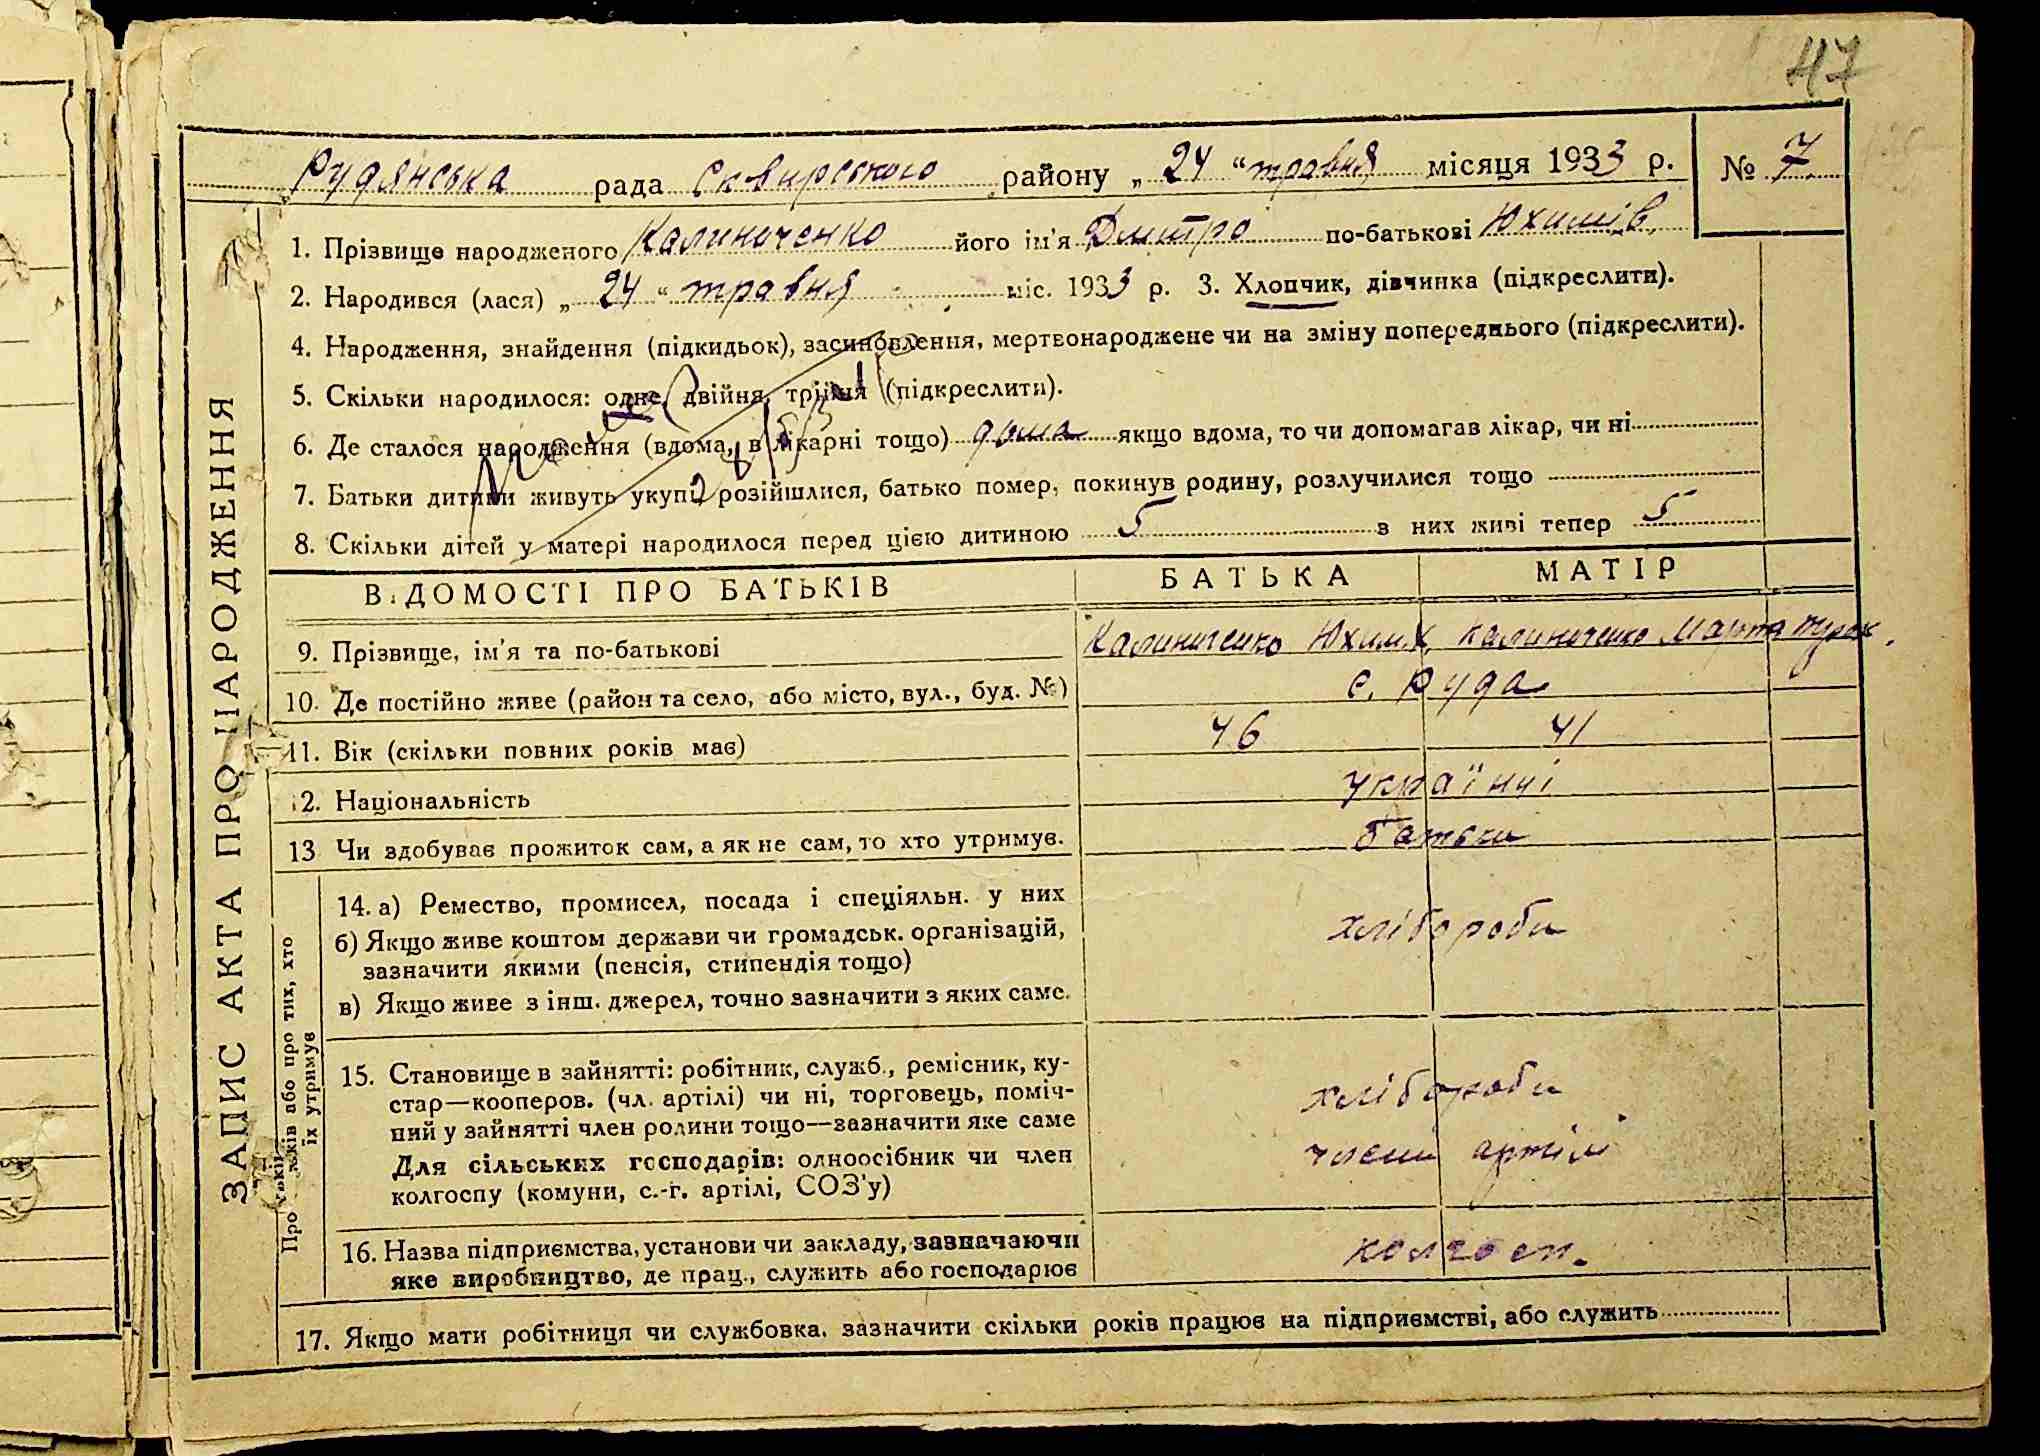 47
Рудянська рада Сквирського району „24“ травня місяця 1933 р. № 7
1. Прізвище народженого Калиниченко його ім'я Дмитро по-батькові Юхимів
2. Народився (лася) „24“ травня міс. 1933 р. 3. Хлопчик, дівчинка (підкреслити).
4. Народження, знайдення (підкидьок), засиновлення, мертвонароджене чи на зміну попереднього (підкреслити).
5. Скільки народилося: одне, двійня, трійня (підкреслити).
6. Де сталося народження (вдома, в лікарні тощо) дома якщо вдома, то чи допомагав лікар, чи ні
7. Батьки дитини живуть укупі, розійшлися, батько помер, покинув родину, розлучилися тощо
8. Скільки дітей у матері народилося перед цією дитиною 5 з них живі тепер 5
ВІДОМОСТІ ПРО БАТЬКІВ БАТЬКА МАТІР
9. Прізвище, ім'я та по-батькові Калиниченко Юхим Х. Калиниченко Марта
10. Де постійно живе (район та село, або місто, вул., буд. №) с. Руда
11. Вік (скільки повних років має) 46 41
12. Національність українці
13 Чи здобуває прожиток сам, а як не сам, то хто утримує. батьки
14. а) Ремество, промисел, посада і спеціяльн. у них
б) Якщо живе коштом держави чи громадськ. організацій,
зазначити якими (пенсія, стипендія тощо)
в) Якщо живе з інш. джерел, точно зазначити з яких саме.
хлібороби
15. Становище в зайнятті: робітник, служб., ремісник, ку-
стар—кооперов. (чл. артілі) чи ні, торговець, поміч-
ний у зайнятті член родини тощо—зазначити яке саме
Для сільських господарів: одноосібник чи член
колгоспу (комуни, с.-г. артілі, СОЗ'у)
хлібороби
члени артілі
16. Назва підприємства, установи чи закладу, зазначаючи
яке виробництво, де прац., служить або господарює
колгосп.
17. Якщо мати робітниця чи службовка, зазначити скільки років працює на підприємстві, або служить
ЗАПИС АКТА ПРО НАРОДЖЕННЯ
Про батьків або про тих, хто
їх утримує